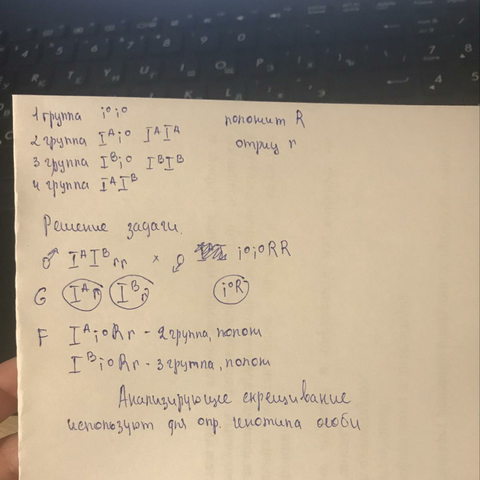 1 группа i⁰i⁰ положит R
2 группа Iᴬi⁰ IᴬIᴬ отриц r
3 группа Iᴮi⁰ IᴮIᴮ
4 группа IᴬIᴮ
Решение задачи.
♂ IᴬIᴮrr × ♀ i⁰i⁰RR
G Iᴬr Iᴮr i⁰R
F Iᴬi⁰Rr - 2 группа, полож
Iᴮi⁰Rr - 3 группа, полож
Анализирующее скрещивание
используют для опр. генотипа особи